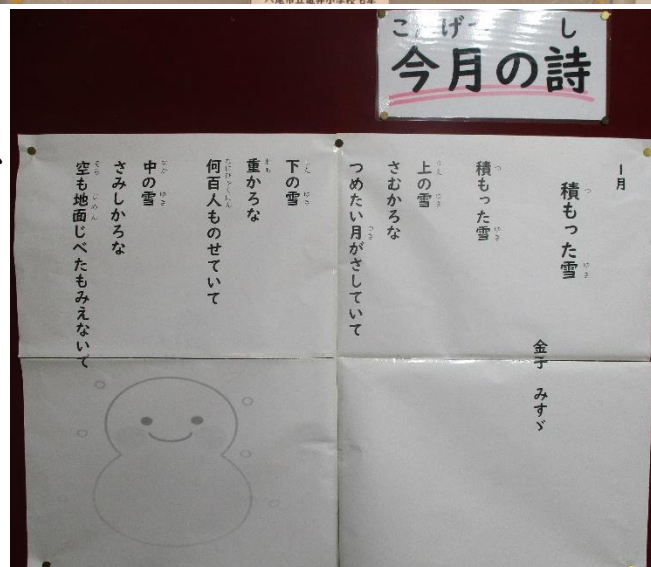 八尾市立亀井小学校 6年
こ げつ し
今月の詩
一月
積もった雪
金子 みすゞ
積もった雪
上の雪
さむかろな
つめたい月がさしていて
下の雪
重かろな
何百人ものせていて
中の雪
さみしかろな
空も地面じべたもみえないで